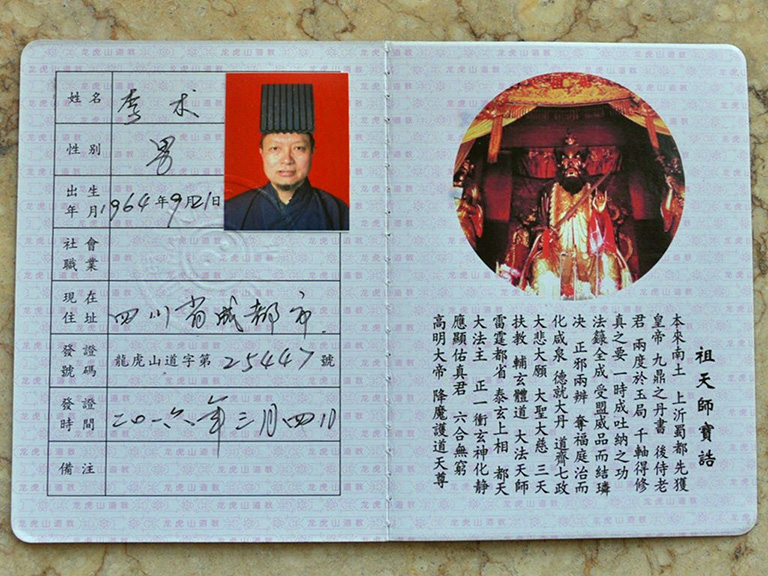 姓名 李术
性别 男
出生年月 1964年9月21日
社會職業
現在住址 四川省成都市.
發證號碼 龍虎山道字第25447號
發證時間 二〇一六年三月四日
備注
祖天師寶誥
本來南土 上沂蜀都先獲
皇帝 九鼎之丹書 後侍老
君 兩度於玉局 千軸得修
真之要 一時成吐納之功
法籙全成 受盟威品而結璘
決 正邪兩辨 奪福庭治而
化咸泉 德就大丹 道齊七政
大悲大願 大聖大慈 三天
扶教 輔玄體道 大法天師
雷霆都省 泰玄上相 都天
大法主 正一衝玄神化靜
應顯佑真君 六合無窮
高明大帝 降魔護道天尊